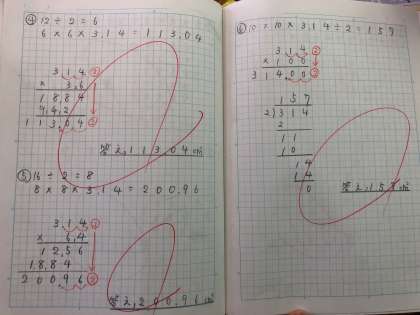 ④ 12 ÷ 2 = 6
6 × 6 × 3,14 = 113,04
3,14 ②
× 3,6
1884
942
113,04 ②
答え,113,04㎠
⑤ 16 ÷ 2 = 8
8 × 8 × 3,14 = 200,96
3,14 ②
× 6,4
1256
1884
200,96 ②
答え,200,96㎠
⑥ 10 × 10 × 3,14 ÷ 2 = 157
3,14 ②
× 100
314,00 ②
157
2)314
2
11
10
14
14
0
答え,157㎠